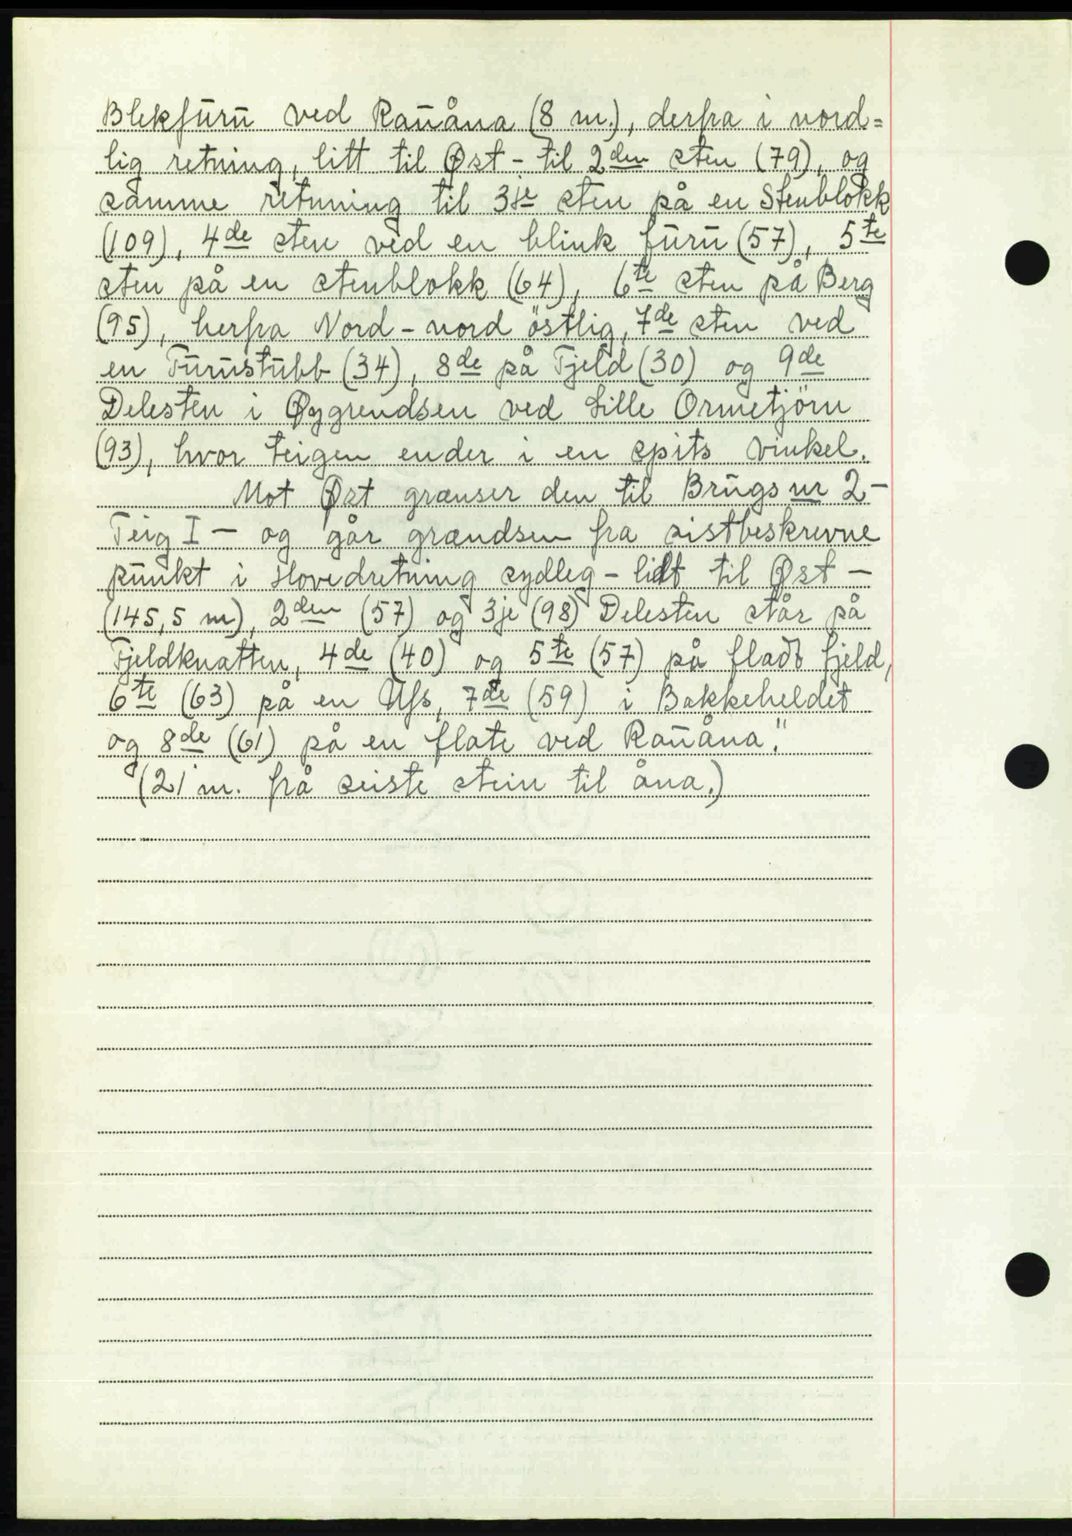 Blekfuru ved Rauåna (8 m.), derfra i nord=
lig retning, litt til Øst - til 2den sten (79), og
samme retning til 3je sten på en Stenblokk
(109), 4de sten ved en blink furu (57), 5te
sten på en stenblokk (64), 6te sten på Berg
(95), herfra Nord - nord östlig, 7de sten ved
en Furustubb (34), 8de på Fjeld (30) og 9de
Delesten i Øygrendsen ved Lille Ormetjörn
(93), hvor teigen ender i en spits vinkel.
Mot Øst grænser den til Brugs nr 2 -
Teig I - og går grændsen fra sistbeskrevne
punkt i Hovedretning sydleg - lidt til Øst -
(145,5 m), 2den (57) og 3je (98) Delesten står på
Fjeldknatten, 4de (40) og 5te (57) på fladt fjeld,
6te (63) på en Ufs, 7de (59) i Bakkeheldet
og 8de (61) på en flate ved Rauåna."
(21 m. frå seiste stein til åna.)